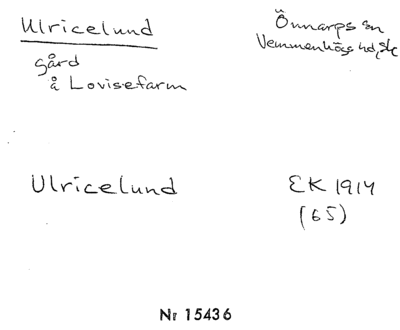 Ulricelund
Önnarps sn
Vemmenhögs hd, Sk
gård
å Lovisefarm
Ulricelund
EK 1914
(65)
Nr 15436